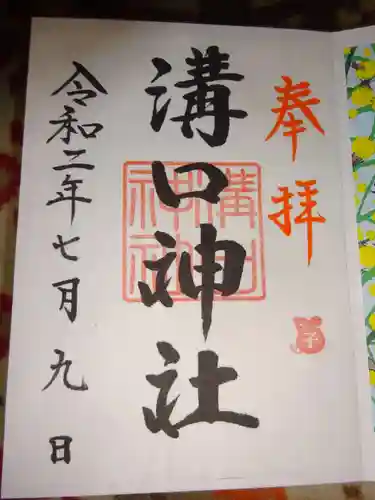 奉拝
溝口神社
溝口神社
子
令和二年七月九日